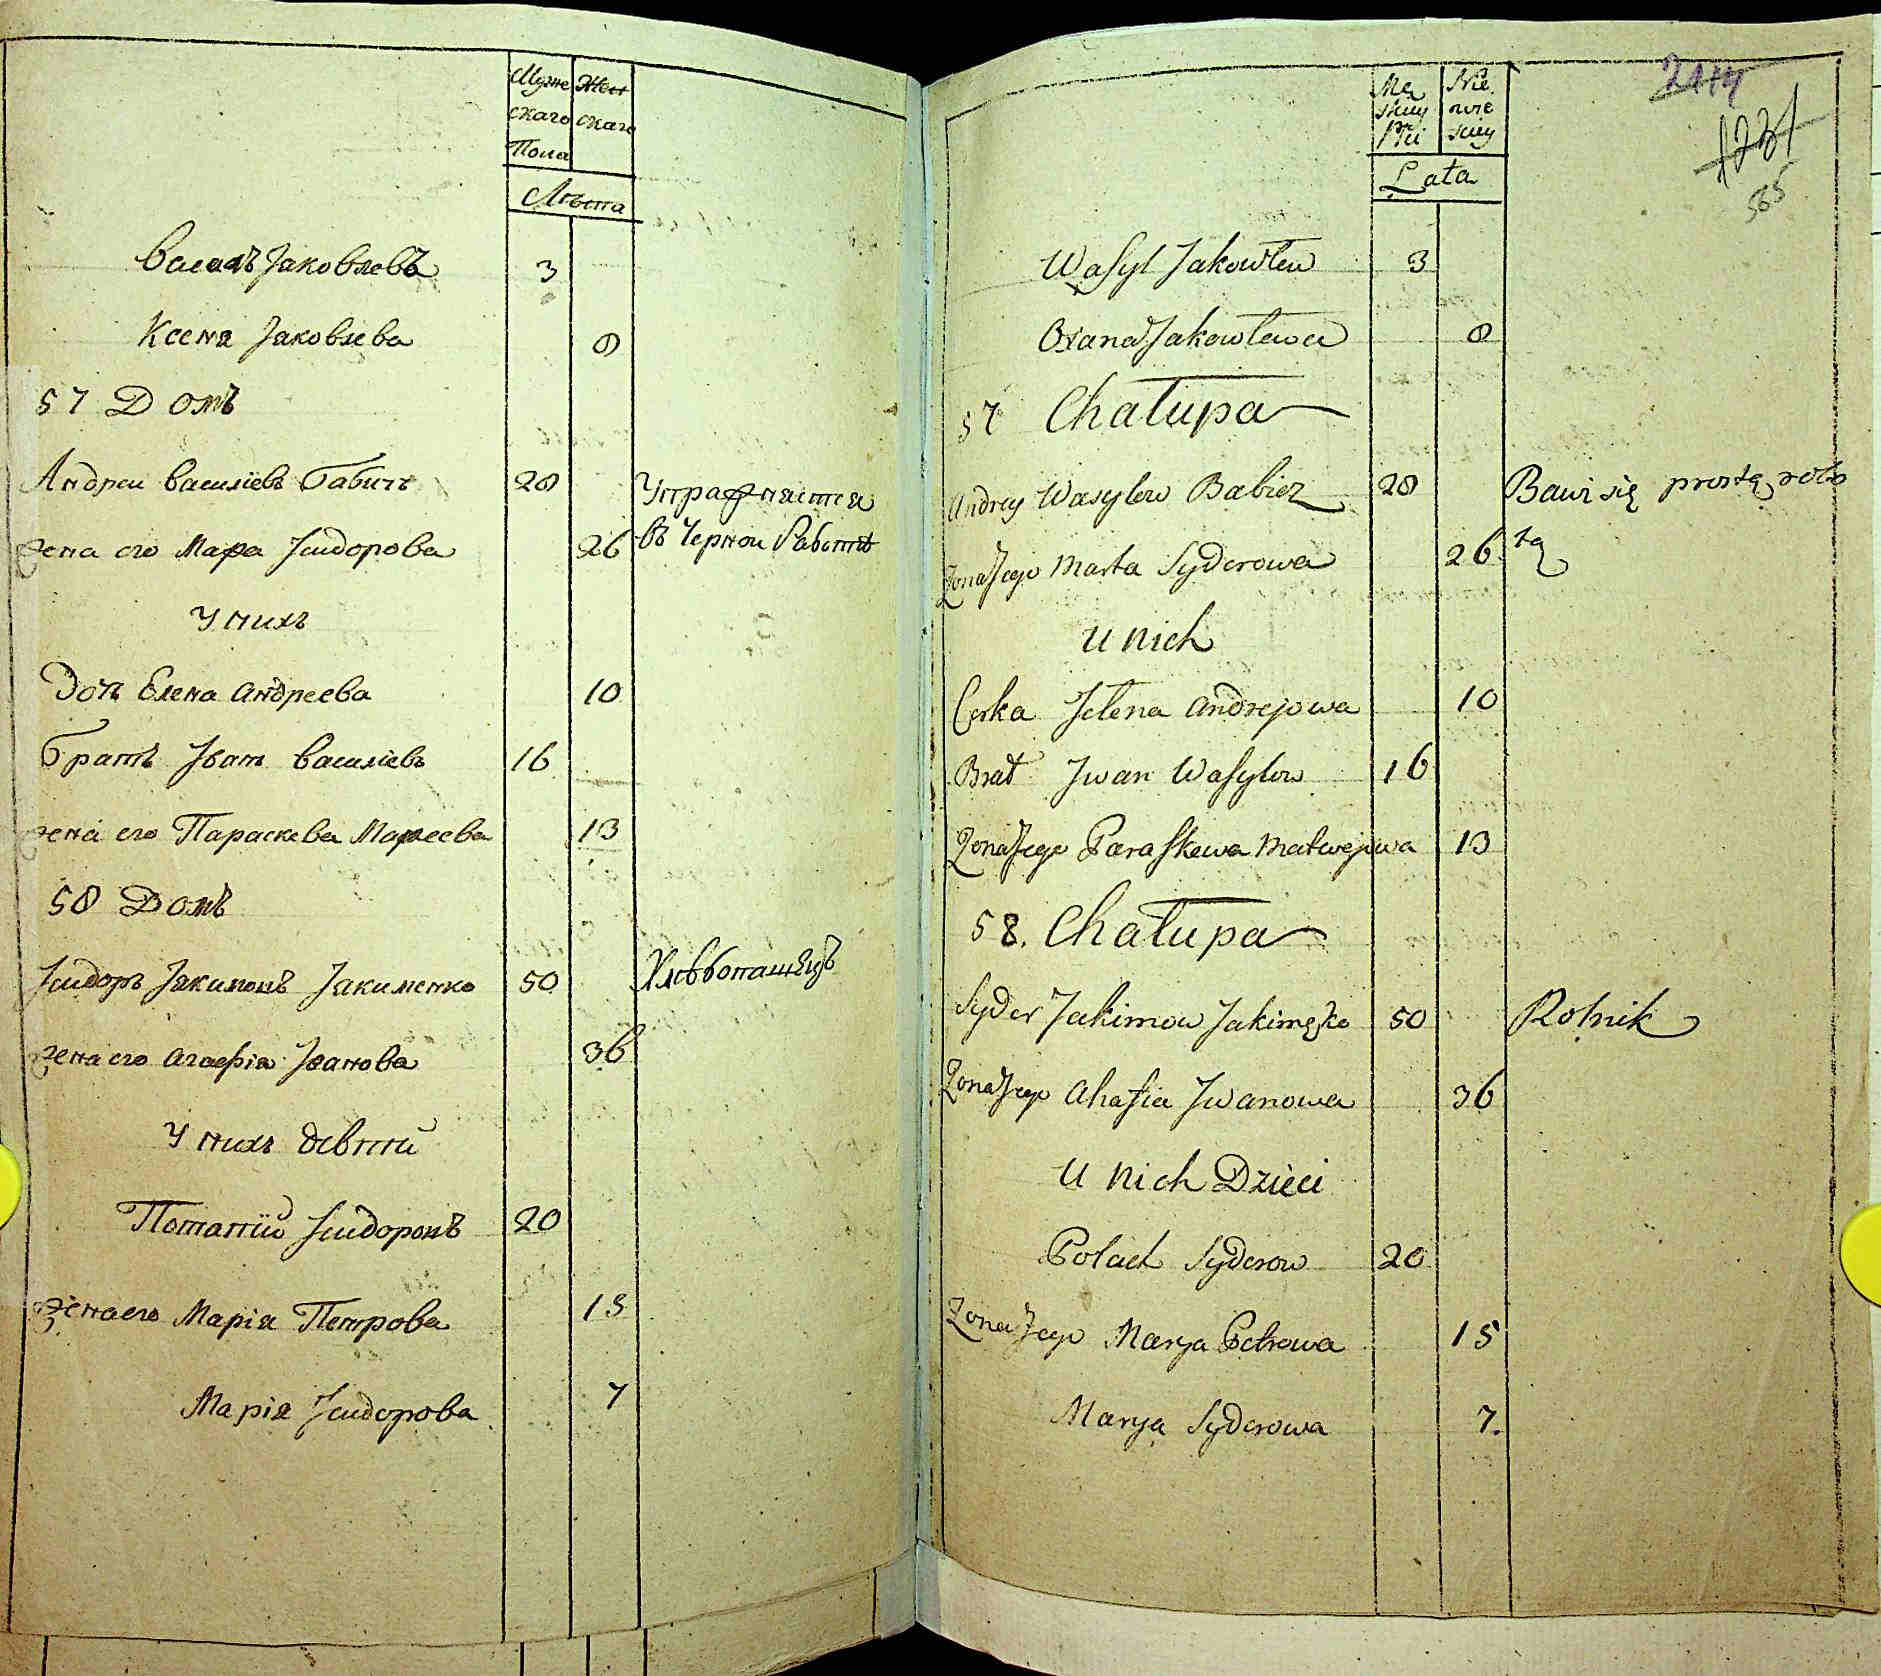 Муже Жен
скаго скаго
Пола
Лѣта
Василь Јаковлевъ 3
Ксеня Јаковлева 8
57 Домъ
Андреи Василіевъ Бабичъ 28 Упражняется
жена его Марѳа Јсидорова 26 въ Чернои Работѣ
У нихъ
Дочь Елена Андреева 10
братъ Јванъ Василіевъ 16
жена его Параскева Маѳеева 13
58 Домъ
Јсидоръ Јакимовъ Јакименко 50 Хлѣбопашецъ
жена его Агафія Јванова 36
У нихъ дѣти
Потапій Јсидоровъ 20
жена его Марія Петрова 15
Марія Јсидорова 7
Mę Nie
skiey wie
Płci skiey
Lata
1231
565
Wasyl Jakowlew 3
Oxana Jakowlewa 8
57 Chałupa
Andrey Wasylow Babicz 28 Bawi się prostą robo
Zona Jego Marta Syderowa 26 tą
U nich
Corka Jelena Andrejowa 10
Brat Jwan Wasylow 16
Zona Jego Paraskewa Matwejowa 13
58. Chałupa
Syder Jakimow Jakimęko 50 Rolnik
Zona Jego Ahafia Jwanowa 36
U nich Dzieci
Potach Syderow 20
Zona Jego Marya Petrowa 15
Marya Syderowa 7.